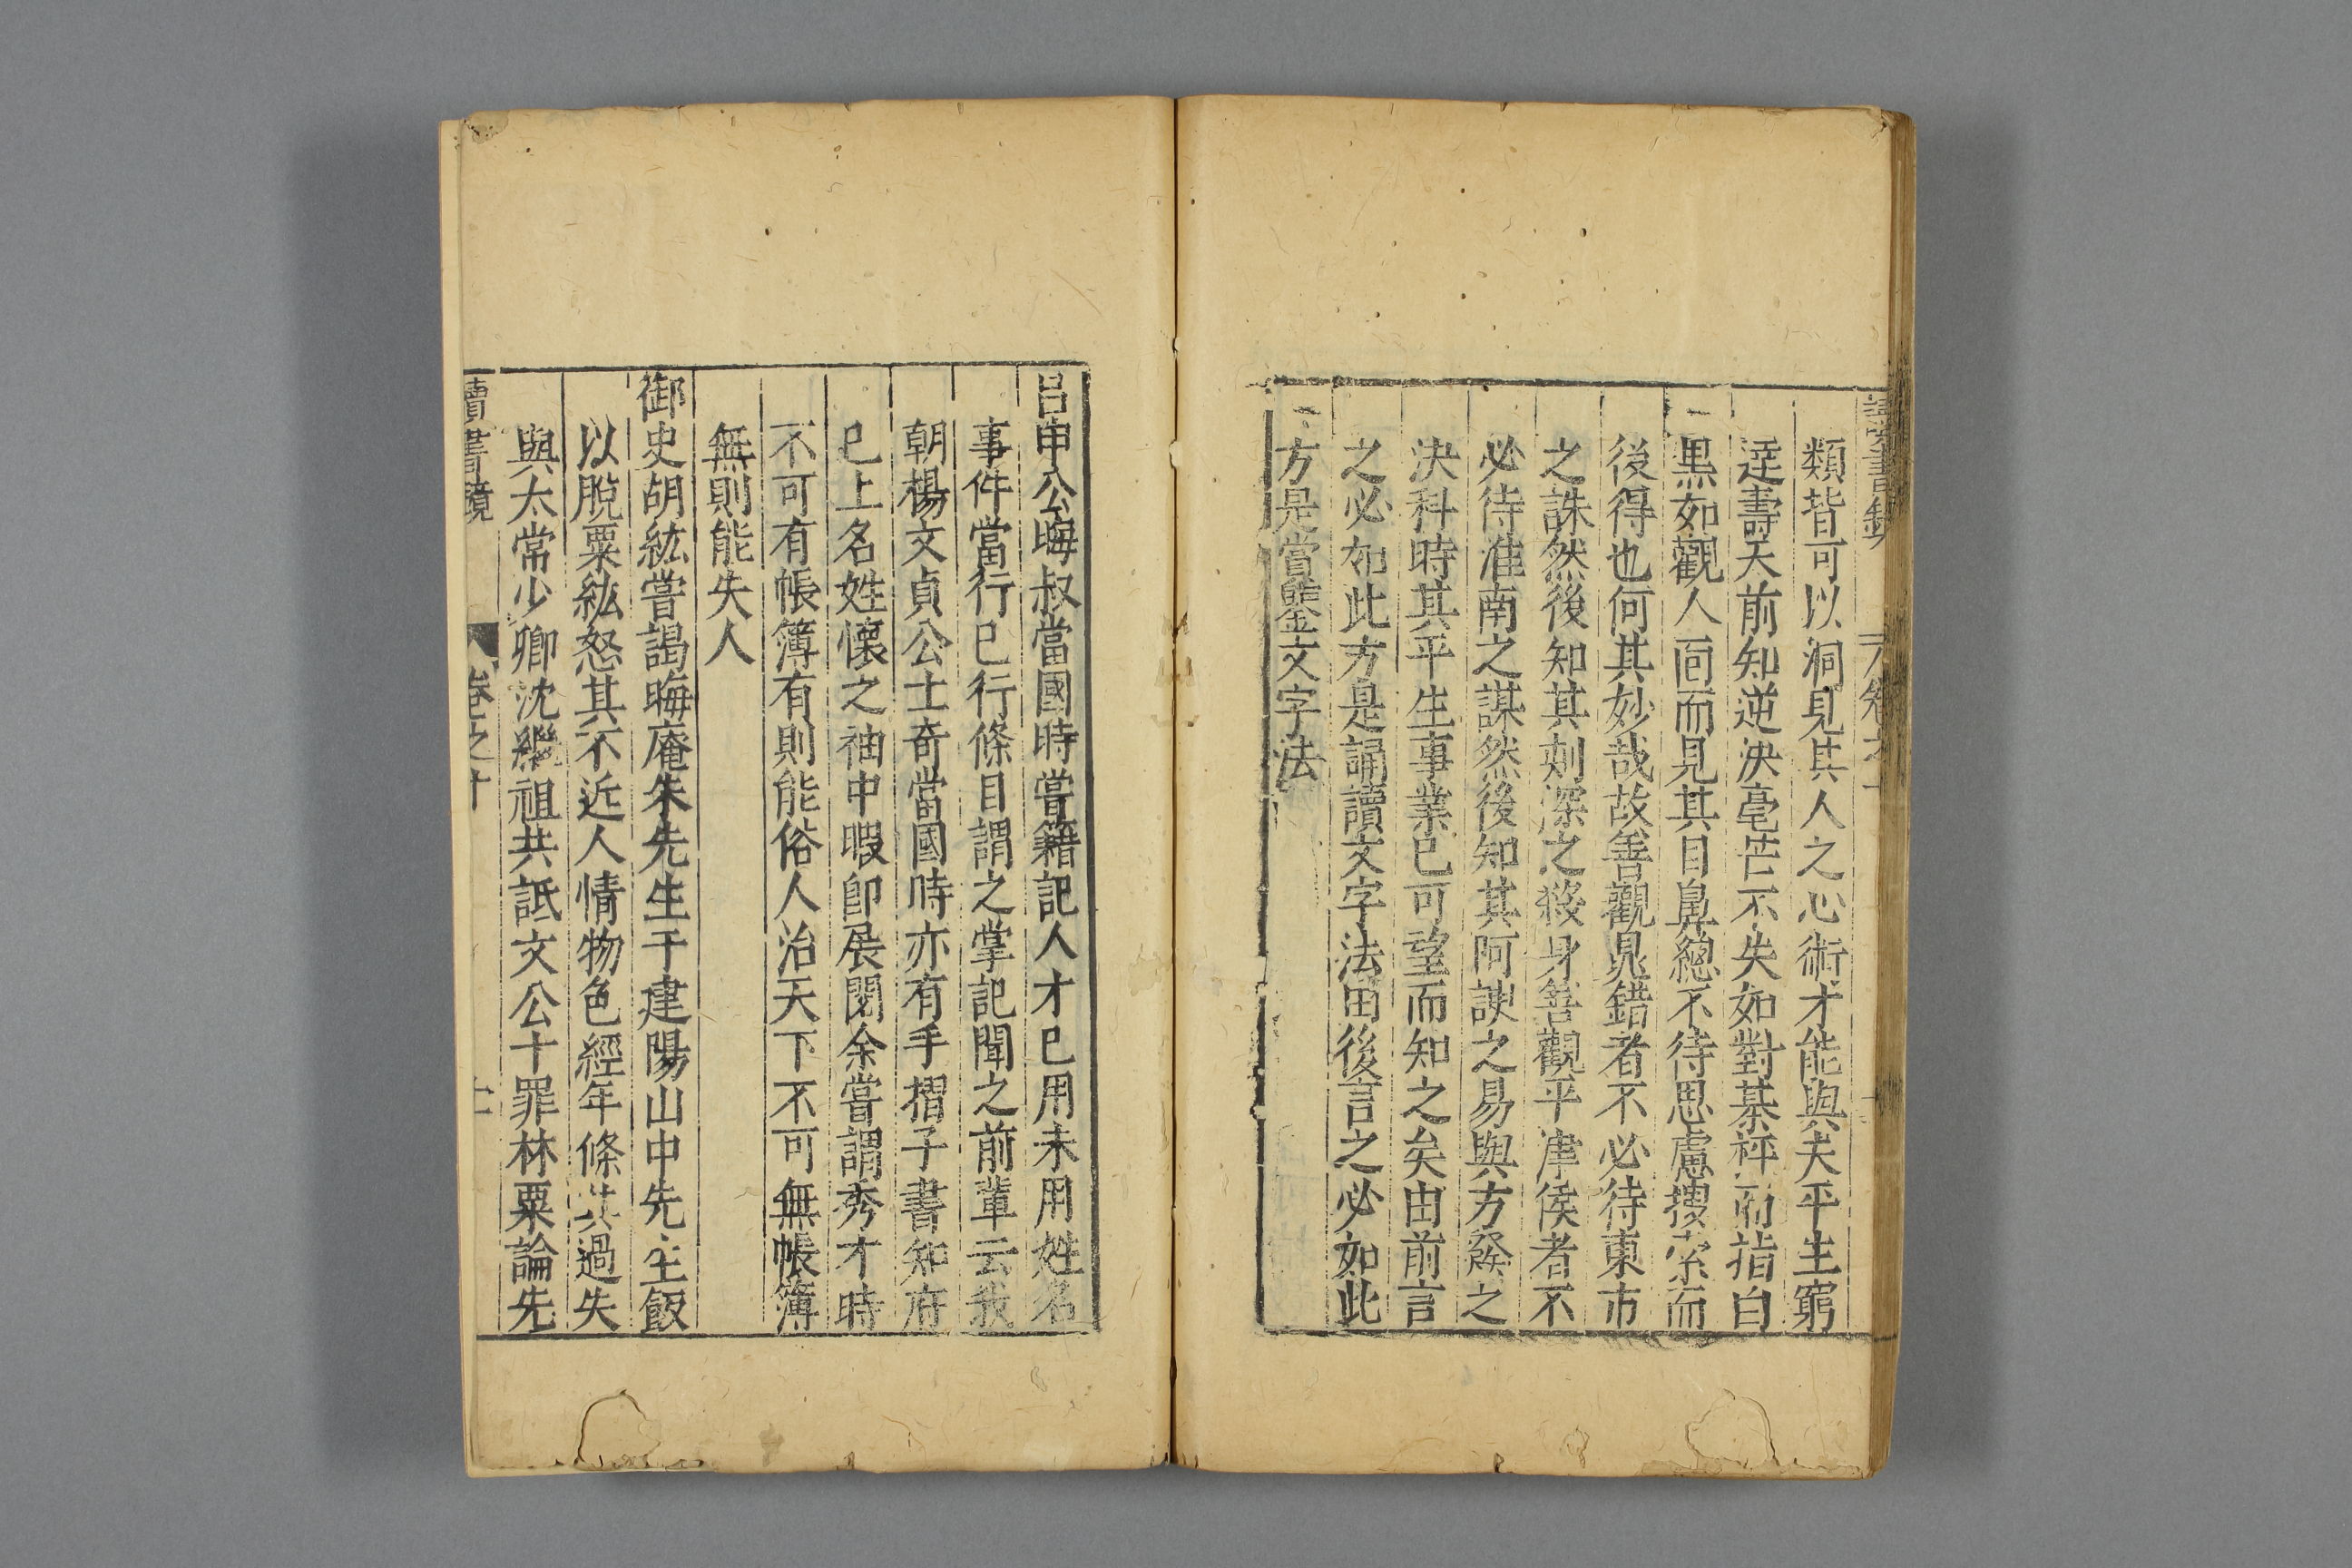 讀書鏡 卷之十
類皆可以洞見其人之心術才能與夫平生窮
達壽夭前知逆決毫芒不失如對棊枰而指白
黑如觀人面而見其目鼻總不待思慮搜索而
後得也何其妙哉故善觀晁錯者不必待東市
之誅然後知其刻深之殺身善觀平津侯者不
必待淮南之謀然後知其阿諛之易與方發之
決科時其平生事業已可望而知之矣由前言
之必如此方是誦讀文字法由後言之必如此
方是嘗鑒文字法
呂申公晦叔當國時嘗籍記人才已用未用姓名
事件當行已行條目謂之掌記聞之前輩云我
朝楊文貞公士奇當國時亦有手摺子書知府
已上名姓懷之袖中暇卽展閱余嘗謂秀才時
不可有帳簿有則能俗人治天下不可無帳簿
無則能失人
御史胡紘嘗謁晦庵朱先生于建陽山中先生飯
以脫粟紘怒其不近人情物色經年條其過失
與太常少卿沈繼祖共詆文公十罪林粟論先
讀書鏡 卷之十 十一